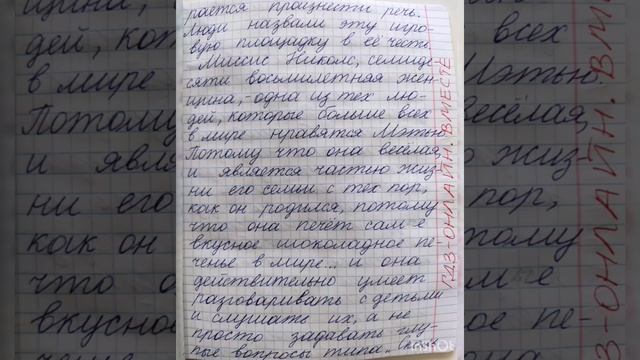 рается произнести речь.
Люди назвали эту игро-
вую площадку в её честь.
Миссис Николс, семиде-
сяти восьмилетняя жен-
щина,-одна из тех лю-
дей, которые больше всех
в мире нравятся Мэтью.
Потому что она весёлая,
и является частью жиз-
ни его семьи с тех пор,
как он родился, потому
что она печёт самое
вкусное шоколадное пе-
ченье в мире... и она
действительно умеет
разговаривать с детьми
и слушать их, а не
просто задавать глу-
пые вопросы типа „
ГДЗ-ОНЛАЙН. ВМЕСТЕ